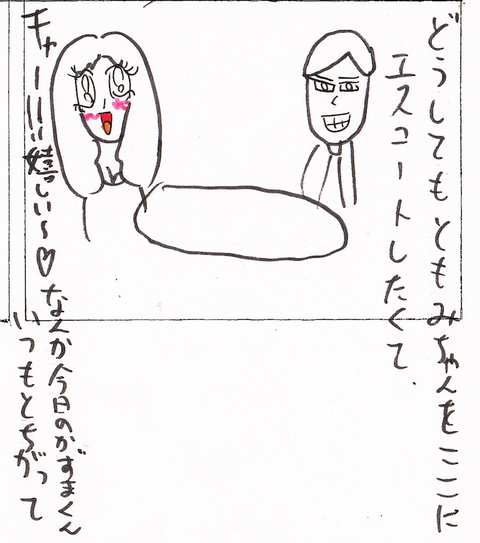 どうしてもともみちゃんをここに
エスコートしたくて.
キャー!!!嬉しい〜♡なんか今日のかずまくん
いつもとちがって